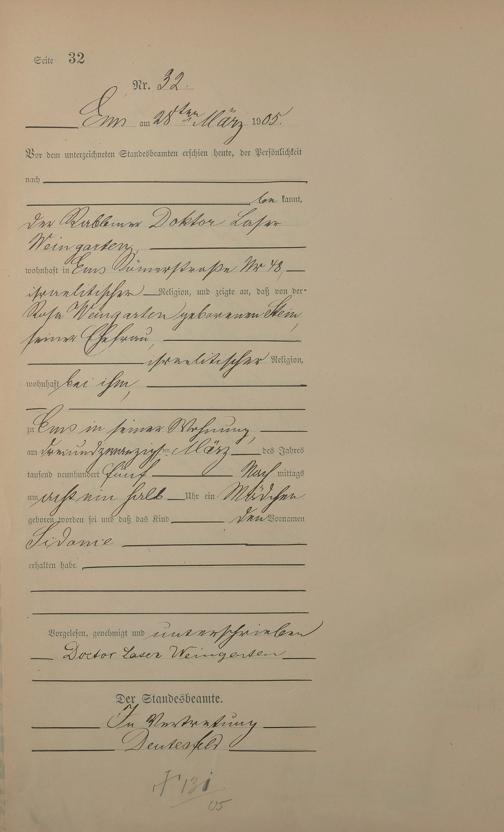 Seite 32
Nr. 32.
Ems am 28ten März 1905.
Vor dem unterzeichneten Standesbeamten erschien heute, der Persönlichkeit
nach
be kannt,
der Rabbiner Doktor Laser
Weingarten,
wohnhaft in Ems Römerstraße Nr 48,
israelitischer Religion, und zeigte an, daß von der
Rosa Weingarten geborenen Stein,
seiner Ehefrau,
israelitischer Religion,
wohnhaft bei ihm,
zu Ems in seiner Wohnung,
am dreiundzwanzigsten März des Jahres
tausend neunhundert fünf Nach mittags
um acht ein halb Uhr ein Mädchen
geboren worden sei und daß das Kind den Vornamen
Sidonie
erhalten habe.
Vorgelesen, genehmigt und unterschrieben
Doctor Laser Weingarten
Der Standesbeamte.
In Vertretung